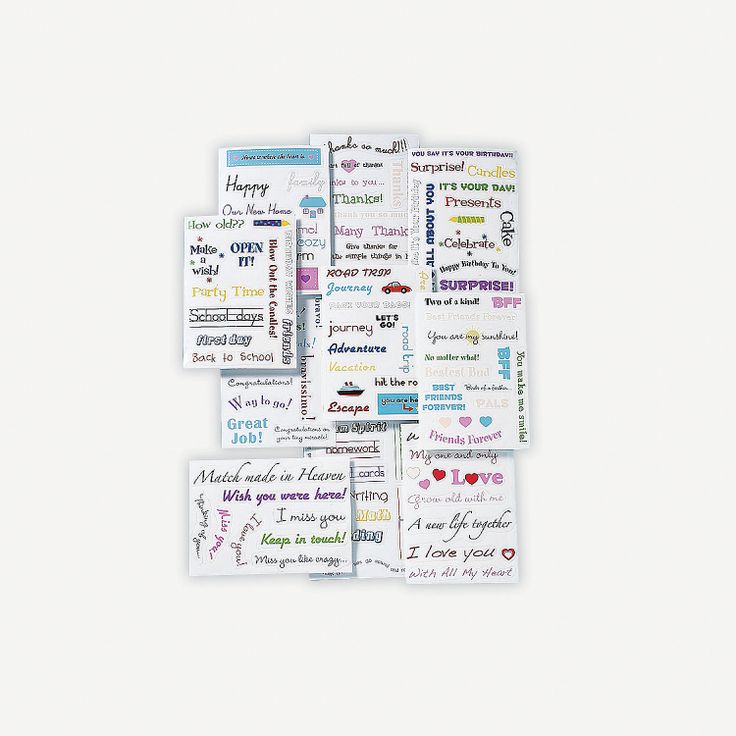 Home is where the heart is
Happy
family
Our New Home
cozy
Thanks so much!!!
full of thanks
Thanks!
Thanks
thank you so much
Many Thank
Give thanks for
the simple things in
YOU SAY IT'S YOUR BIRTHDAY!!
Surprise!
Candles
IT'S YOUR DAY!
Presents
ALL ABOUT YOU
Cake
Celebrate
Happy Birthday To You!
SURPRISE!
How old??
Make
a
wish!
OPEN
IT!
Blow Out the Candles!
BIRTHDAY WISHES
Party Time
School days
first day
friends
Back to School
ROAD TRIP
Journey
PACK YOUR BAGS!
journey
LET'S
GO!
road trip
Adventure
Vacation
hit the ro
Escape
you are he
bravo!
bravissimo!
Two of a kind!
BFF
Best Friends Forever
You are my sunshine!
No matter what!
BFF
Bestest Bud
Birds of a feather...
BEST
FRIENDS
FOREVER!
PALS
You make me smile!
Friends Forever
Congratulations!
Way to go!
Great
Job!
Congratulations on
your tiny miracle!
Spirit
homework
cards
Writing
Math
Match made in Heaven
Wish you were here!
thinking of you...
Miss you...
I love you!
I miss you
Keep in touch!
Miss you like crazy...
My one and only
Love
Grow old with me
A new life together
I love you
With All My Heart